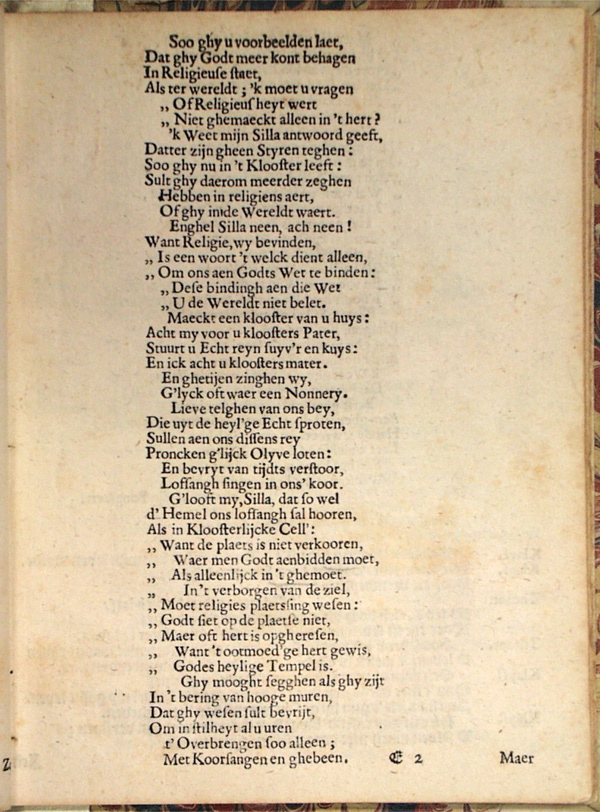 Soo ghy u voorbeelden laet,
Dat ghy Godt meer kont behagen
In Religieuſe ſtaet,
Als ter wereldt ; 'k moet u vragen
„ Of Religieuſheyt wert
„ Niet ghemaeckt alleen in 't hert ?
'k Weet mijn Silla antwoord geeft,
Datter zijn gheen Styren teghen :
Soo ghy nu in 't Klooſter leeft :
Sult ghy daerom meerder zeghen
Hebben in religiens aert,
Of ghy inde Wereldt waert.
Enghel Silla neen, ach neen !
Want Religie, wy bevinden,
„ Is een woort 't welck dient alleen,
„ Om ons aen Godts Wet te binden :
„ Deſe bindingh aen die Wet
„ U de Wereldt niet belet.
Maeckt een klooſter van u huys :
Acht my voor u klooſters Pater,
Stuurt u Echt reyn ſuyv'r en kuys :
En ick acht u klooſters mater.
En ghetijen zinghen wy,
G'lyck oft waer een Nonnery.
Lieve telghen van ons bey,
Die uyt de heyl'ge Echt ſproten,
Sullen aen ons diſſens rey
Proncken g'lijck Olyve loten :
En bevryt van tijdts verſtoor,
Loffangh ſingen in ons' koor.
G'looft my, Silla, dat ſo wel
d' Hemel ons loffangh ſal hooren,
Als in Klooſterlijcke Cell' :
„ Want de plaets is niet verkooren,
„ Waer men Godt aenbidden moet,
„ Als alleenlijck in 't ghemoet.
„ In't verborgen van de ziel,
„ Moet religies plaetsſing weſen :
„ Godt ſiet op de plaetſe niet,
„ Maer oft hert is opghereſen,
„ Want 't ootmoed'ge hert gewis,
„ Godes heylige Tempel is.
Ghy mooght ſegghen als ghy zijt
In 't bering van hooge muren,
Dat ghy weſen ſult bevrijt,
Om in ſtilheyt al u uren
t' Overbrengen ſoo alleen ;
Met Koorſangen en ghebeen.
E 2 Maer